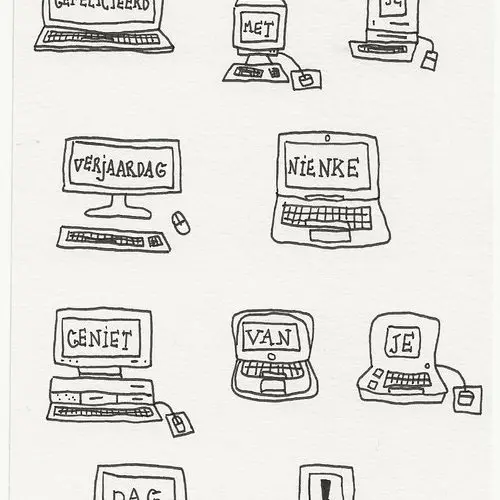 GEFELICITEERD MET JE
VERJAARDAG NIENKE
GENIET VAN JE
DAG !